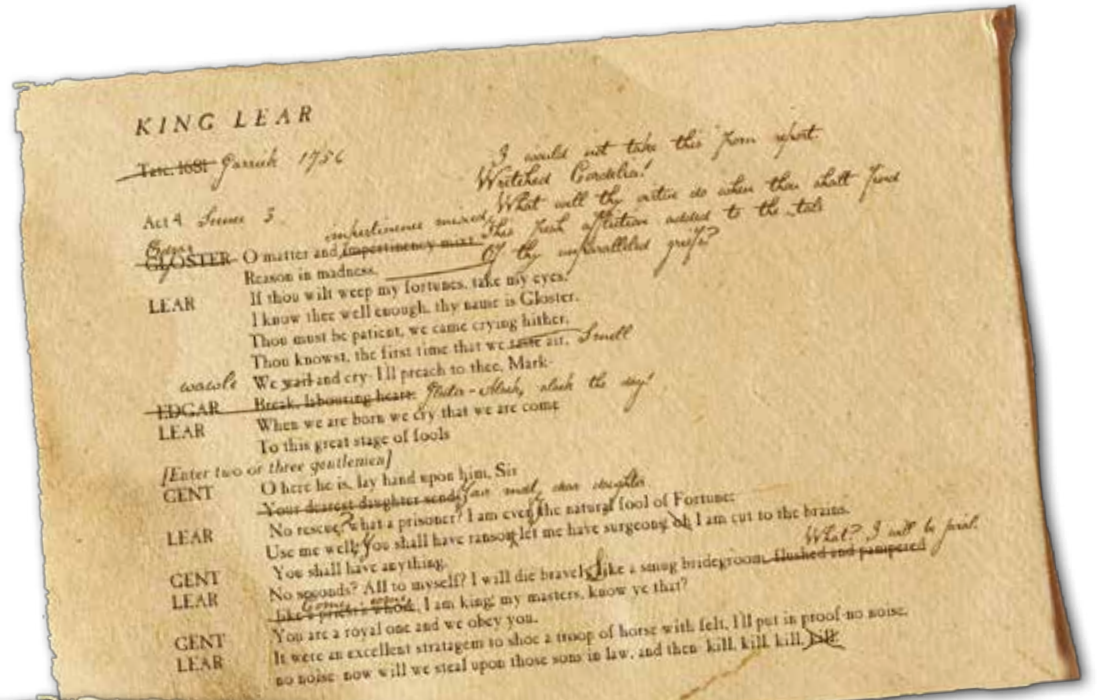 KING LEAR
Tate, 1681 Garrick 1756
I would not take this from report.
Wretched Cordelia!
What will thy virtue do when thou shalt find
This fresh affliction added to the tale
Of thy unparalleled griefs?
Act 4 Scene 3.
impertinence mixed,
Edgar
GLOSTER O matter and impertinency mixt
Reason in madness.
LEAR If thou wilt weep my fortunes, take my eyes.
I know thee well enough, thy name is Gloster.
Thou must be patient, we came crying hither.
Thou knowst, the first time that we taste air, Smell
wawle We wail and cry- I'll preach to thee, Mark-
EDGAR Break, labouring heart. Gloster - Alack, alack the day!
LEAR When we are born we cry that we are come
To this great stage of fools
[Enter two or three gentlemen]
GENT O here he is, lay hand upon him, Sir
Your dearest daughter send, your most dear daughter
LEAR No rescue, what a prisoner? I am even the natural fool of Fortune:
Use me well, you shall have ransom let me have surgeons oh I am cut to the brains.
GENT You shall have anything.
What? I will be jovial.
LEAR No seconds? All to myself? I will die bravely, like a smug bridegroom, flushed and pampered
come, come
like a priest's whore. I am king; my masters, know ye that?
GENT You are a royal one and we obey you.
LEAR It were an excellent stratagem to shoe a troop of horse with felt, I'll put in proof-no noise,
no noise- now will we steal upon those sons in law, and then- kill, kill, kill, kill.